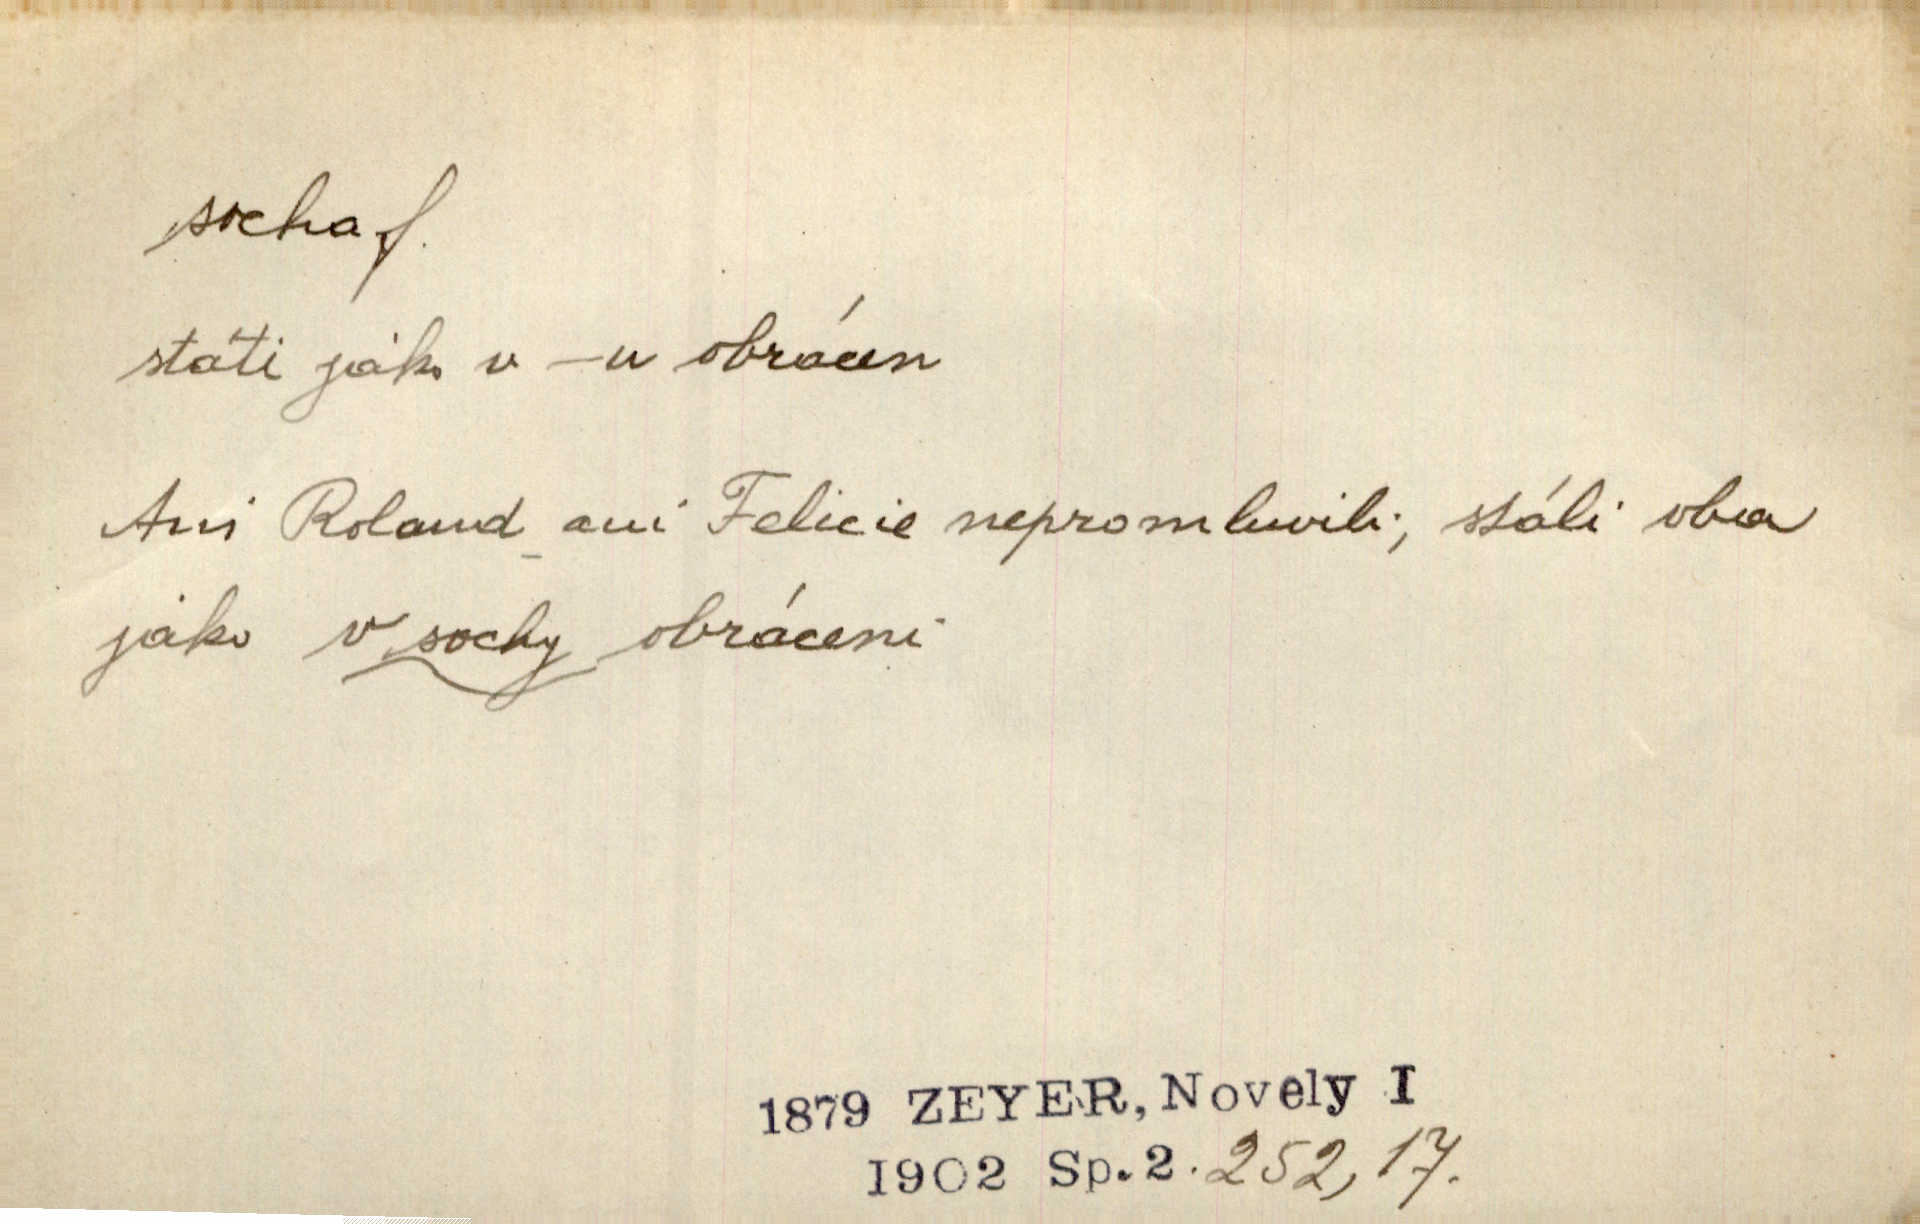 socha f.
státi jako v –u obrácen
Ani Roland ani Felicie nepromluvili; stáli oba
jako v sochy obráceni
1879 ZEYER, Novely I
1902 Sp. 2. 252, 17.